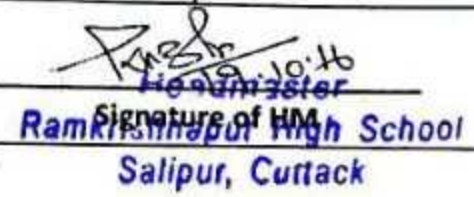 Headmaster
Signature of HM
Ramkrishnapur High School
Salipur, Cuttack